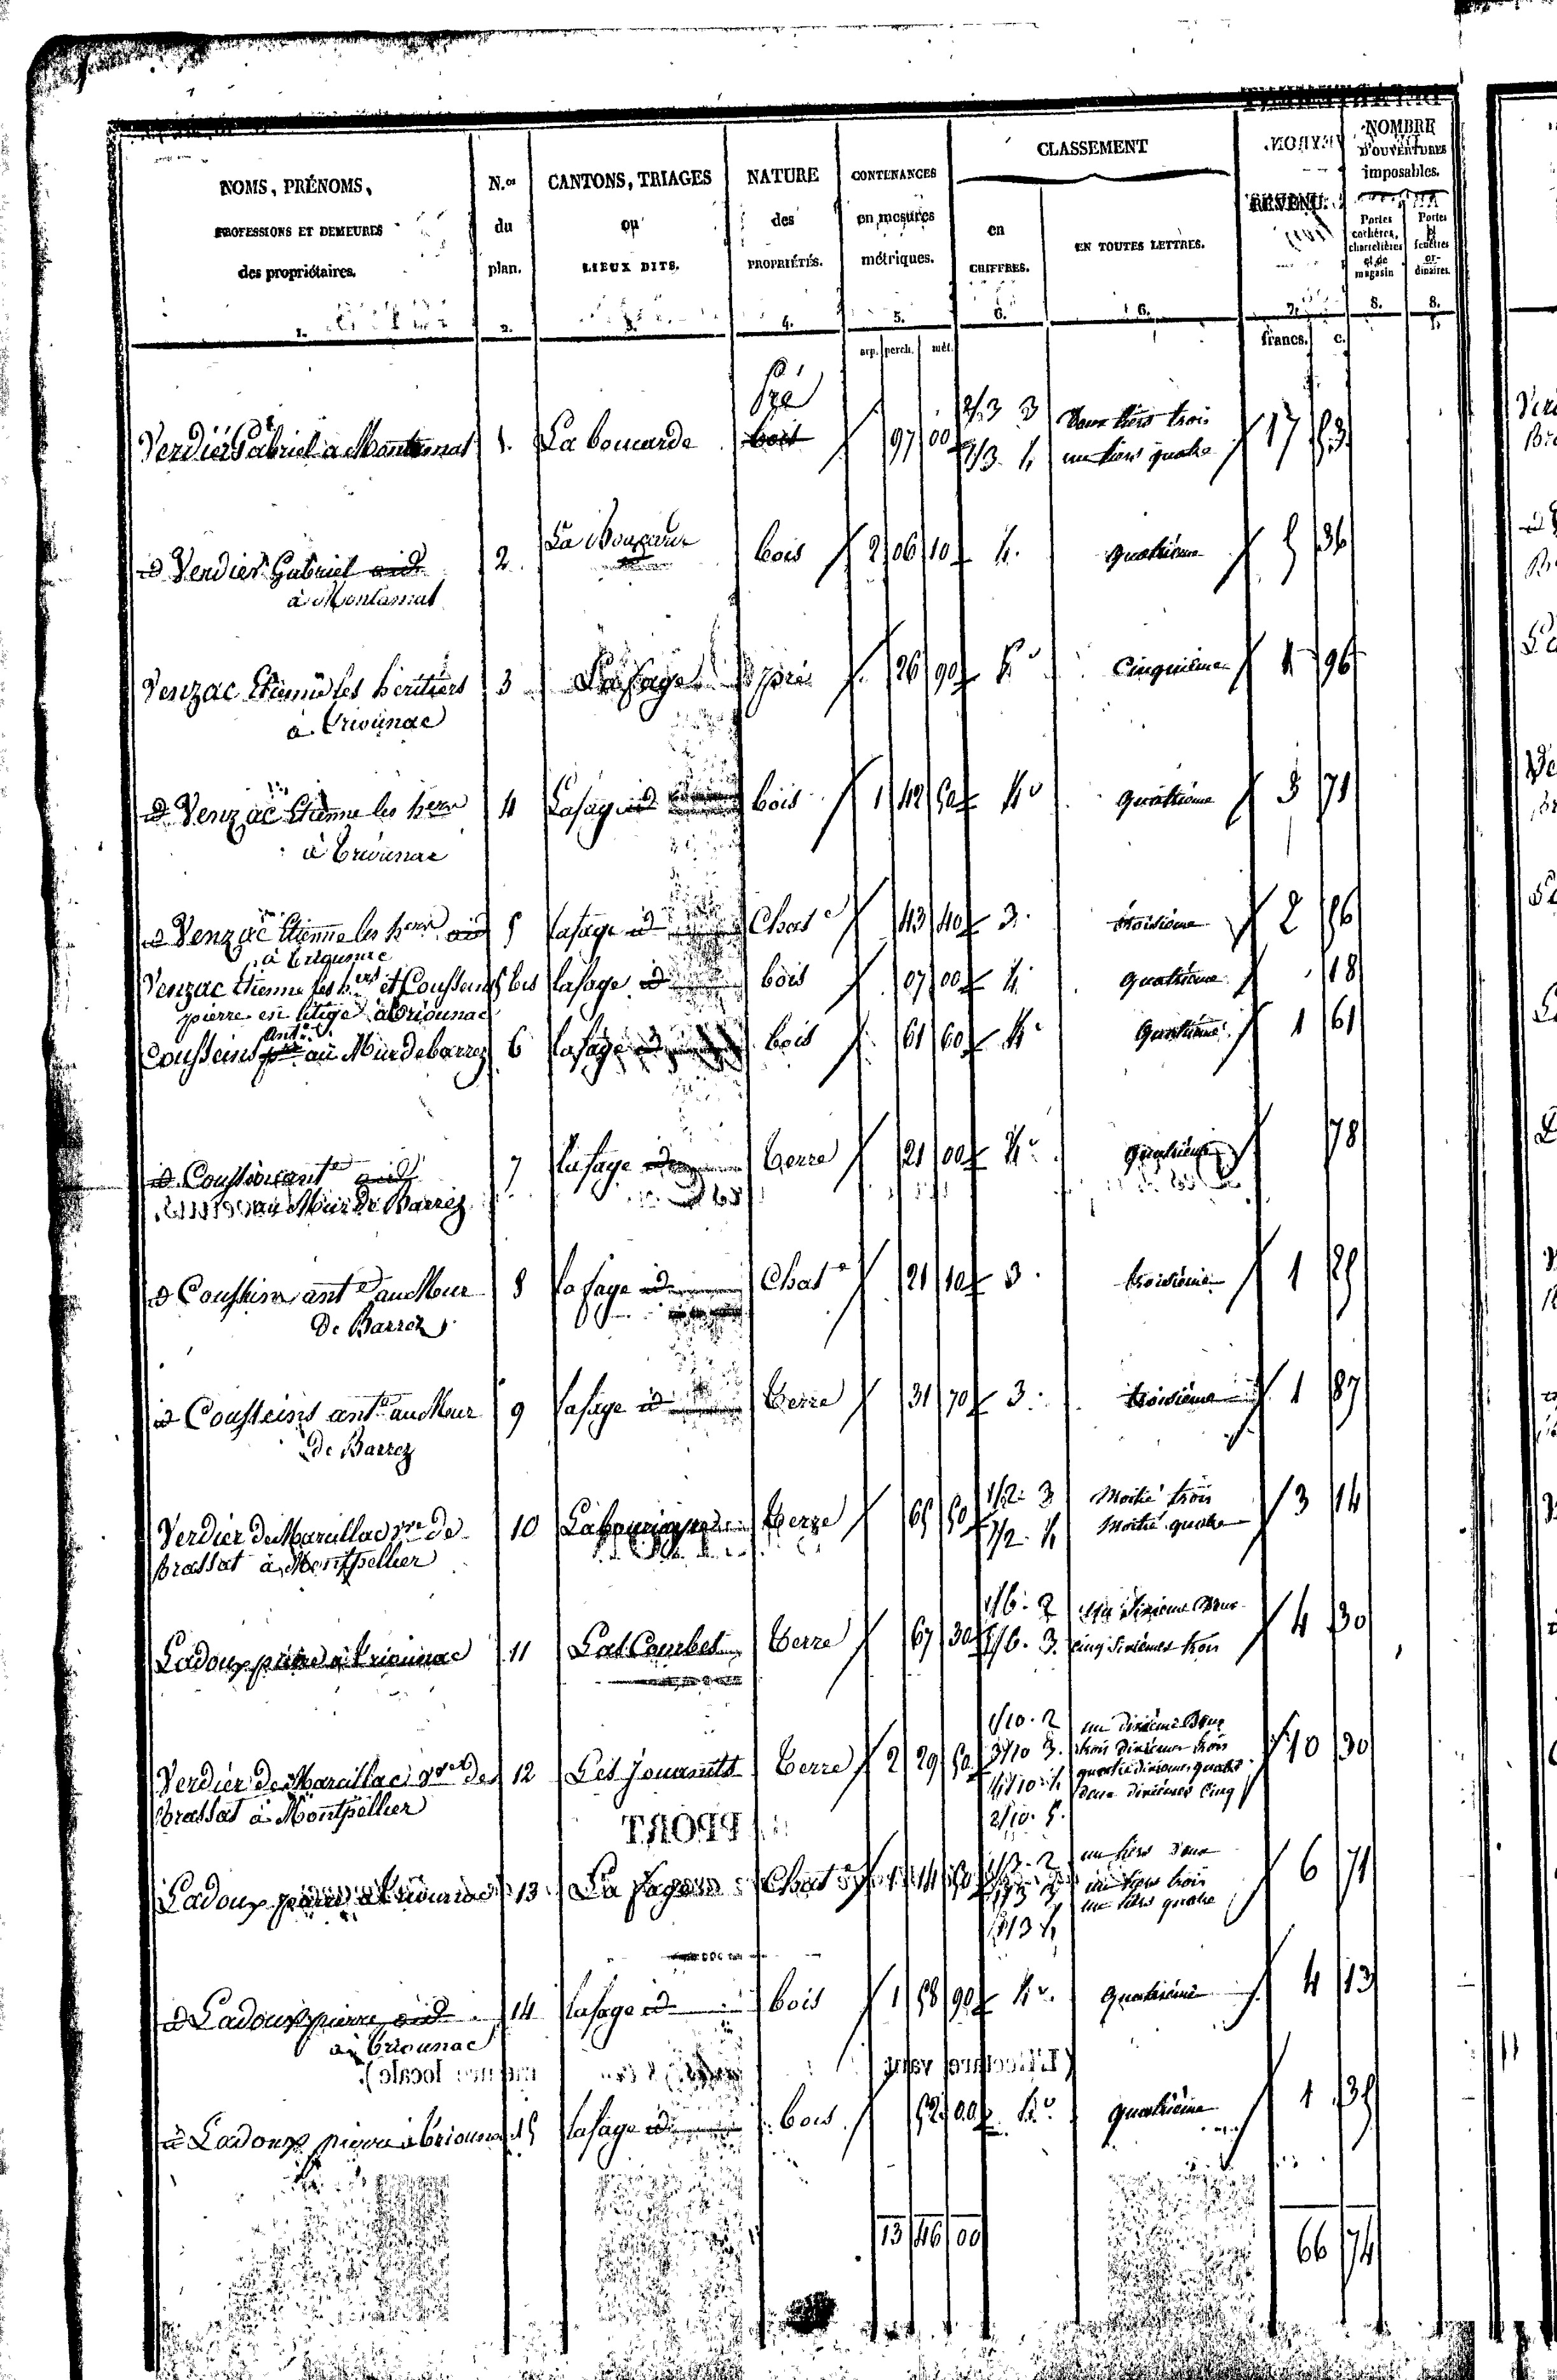 NOMS, PRÉNOMS, PROFESSIONS ET DEMEURES des propriétaires.
N.os du plan.
CANTONS, TRIAGES ou LIEUX DITS.
NATURE des PROPRIÉTÉS.
CONTENANCES en mesures métriques.
CLASSEMENT
en CHIFFRES.
EN TOUTES LETTRES.
REVENU.
NOMBRE D'OUVERTURES imposables.
Portes cochères, charretières et de magasin
Portes et fenêtres ordinaires.
1. 2. 3. 4. 5. 6. 6. 7. 8. 8.
arp. perch. mèt. francs. c.
Pré
Verdier Gabriel a Montamat 1. La boucarde bois 97 00 2/3 3 Deux tiers trois 17 53
1/3 4 un tiers quatre
id Verdier Gabriel id 2 bois 2 06 10 4. quatrième 5 36
à Montamat
Venzac Etienne les héritiers 3 Lafage pré 26 90 Cinquième 1 96
à Briounac
id Venzac Etienne les hers 4 Lafage id bois 1 42 50 4e quatrième 3 71
à Briounac
id Venzac Etienne les hers id 5 lafage id Chate 43 40 3. troisième 2 56
à Briounac
Venzac Etienne les hers et Cousseins 5 bis lafage id bois 07 00 4 quatrième 18
pierre en litige à Briounac
ante
Cousseins pre au Mur de barrez 6 lafage id bois 61 60 4e quatrième 1 61
id Coussein ante id 7 lafage id terre 21 00 4e quatrième 78
au Mur De Barrez
id Coussein ante au Mur 8 lafage id Chate 21 10 3. troisième 1 25
De Barrez
id Cousseins ante au Mur 9 lafage id terre 31 70 3. troisième 1 87
de Barrez
Verdier de Marcillac de 10 terre 65 50 1/2 3 Moitié trois 3 14
brassat à Montpellier 1/2 4 Moitié quatre
Ladoux pierre à Briounac 11 Las Combes terre 67 30 1/6. 2 un sixième Deux 4 30
5/6. 3. cinq sixièmes trois
Verdier de Marcillac de 12 Les Jouanets terre 2 29 50 1/10. 2 un dixième Deux 10 30
brassat à Montpellier 3/10 3. trois dixièmes trois
4/10 4 quatre dixièmes quatre
2/10. 5. deux dixièmes Cinq
PPORT
Ladoux pierre à Briounac 13 La fage Chate 1 14 50 1/3. 2 un tiers Deux 6 71
1/3 3 un tiers trois
1/3 4 un tiers quatre
id Ladoux pierre id 14 lafage id bois 1 58 90 4e. quatrième 4 13
à Briounac
id Ladoux pierre à Briounac 15 lafage id bois 52 00 4e. quatrième 1 35
13 46 00 66 74